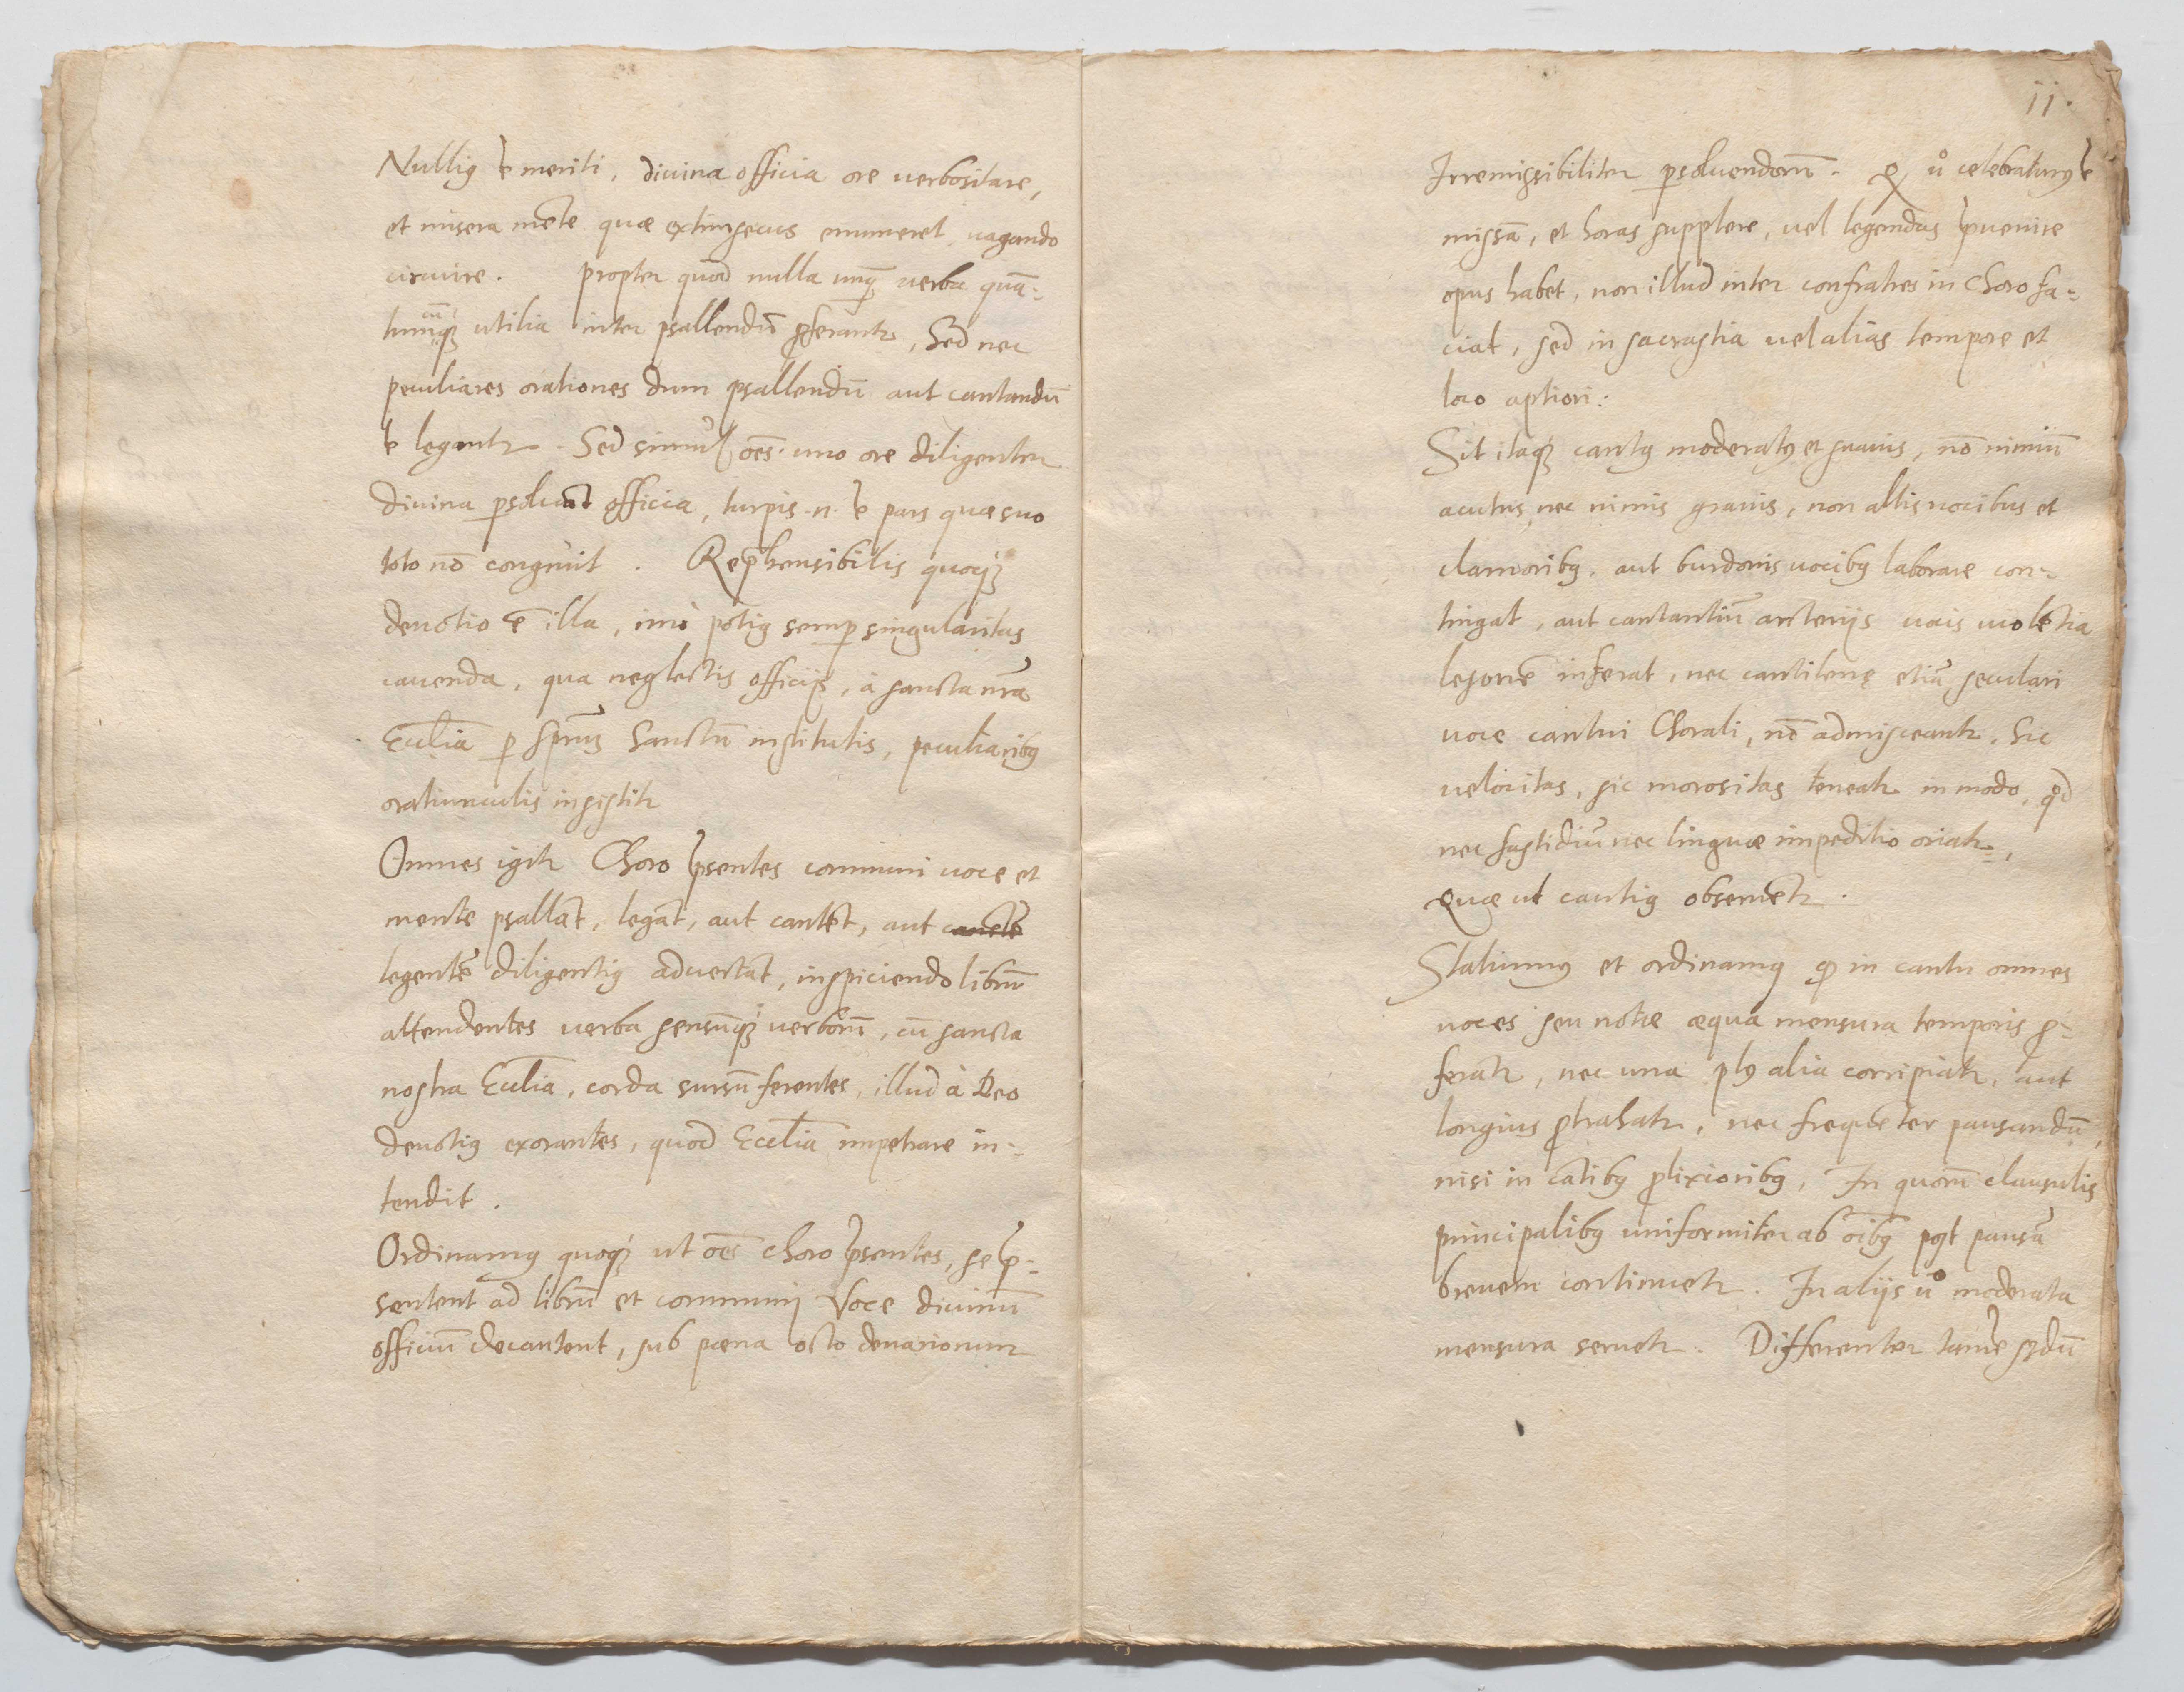 Nullig̃ ẽ meriti, diuina officia ore uerbositare,
et misera mẽte quæ extrinsecus enumeret uagando
circuire. propter quod nulla unq̃ verba quã=
tumcũq; utilia inter psallendũ p̱ferantr, Sed nec
peculiares orationes dum psallendũ aut cantandũ
ẽ legantr. Sed simul oẽs uno ore diligenter
diuina p̱soluãt officia, turpis .n. ẽ pars quæ suo
toto nõ congruit. Rep̃hensibilis quoq;
deuotio ẽ illa, imò potiꝰ semp̱ singularitas
cauenda, qua neglectis officijs, à sancta nr̃a
Eccliã p̱ spm̃ Sanctũ institutis, peculiaribꝰ
oratiunculis insistitr
Omnes igitr Choro p̃sentes communi uoce et
mente psallãt, legãt, aut cantẽt, aut
legentẽ diligentiꝰ aduertãt, inspiciendo librũ
attendentes uerba sensũq; uerborũ, cũ sancta
nostra Eccliã, corda sursũ ferentes, illud à Deo
deuotiꝰ exorantes, quod Eccliã impetrare in=
tendit.
Ordinamꝰ quoq; ut oẽs choro p̃sentes, se p̃=
sentent ad librũ et communj voce diuinũ
officiũ decantent, sub pœna octo denariorum
ii.
Irremissibiliter p̱soluendorũ. Qͥ uº celebraturꝰ ẽ
missã, et horas supplere, uel legendas p̃uenire
opus habet, non illud inter confratres in Choro fa=
ciat, sed in sacrastia uel alias tempore et
loco aptiori:
Sit itaq; cantꝰ moderatꝰ et suauis, nõ nimiũ
acutus, nec nimis grauis, non altis uocibus et
clamoribꝰ. aut burdonis uocibꝰ laborare con=
tingat, aut cantantiũ arterijs uocis uiolẽtia
lesionẽ inferat, nec cantilenę etiã seculari
uoce cantui Chorali, nõ admisceantr. Sic
uelocitas, sic morositas teneatr in modo, qd
nec fastidiũ nec linguæ impeditio oriatr,
Quæ ut cautiꝰ obseruẽtr.
Statuimꝰ et ordinamꝰ qͦ in cantu omnes
uoces seu notæ æqua mensura temporis p̱=
feratr, nec una plꝰ alia corripiatr, aut
longius p̱trahatr, nec frequẽter pausandũ,
nisi in cãtibꝰ p̱lixioribꝰ, In quorũ clausulis
principalibꝰ uniformiter ab oĩbꝰ post pausã
breuem continuetr. In alijs uº moderata
mensura seruetr. Differenter tamẽ s̃cdũ